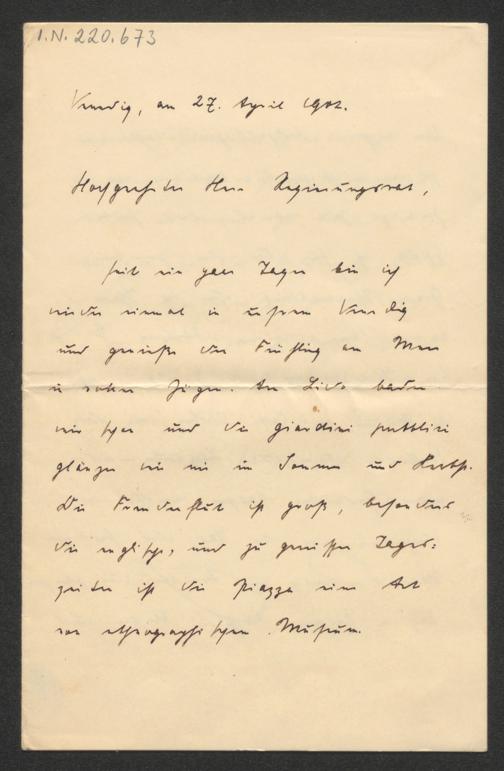 I.N. 220.673
Venedig, am 27. April 1902.
Hochgeehrter Herr Regierungsrat,
seit ein paar Tagen bin ich
wieder einmal in unserem Venedig
und genieße den Frühling am Meer
in vollen Zügen. Am Lido baden
wir schon und die giardini pubblici
glänzen wie nie im Sommer und Herbst.
Die Fremdenflut ist groß, besonders
die englische, und zu gewissen Tages-
zeiten ist die Piazza eine Art
von ethnographischem Museum.